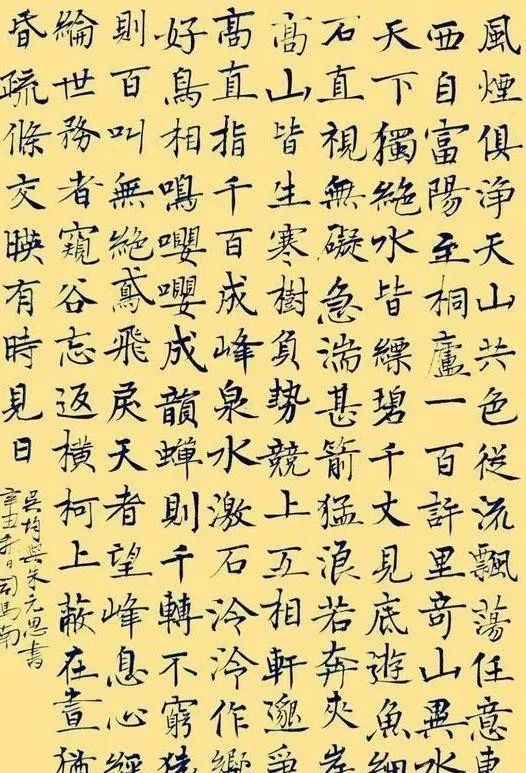 風煙俱浄天山共色從流飄蕩任意東
西自富陽至桐廬一百許里奇山異水
天下獨絶水皆縹碧千丈見底遊魚細
石直視無礙急湍甚箭猛浪若奔夾岸
髙山皆生寒樹負勢競上互相軒邈爭
髙直指千百成峰泉水激石泠泠作響
好鳥相鳴嚶嚶成韻蟬則千轉不窮猿
則百叫無絶鳶飛戾天者望峰息心經
綸世務者窺谷忘返横柯上蔽在晝猶
昏疏條交暎有時見日
吳均與朱元思書
辛丑 司馬南